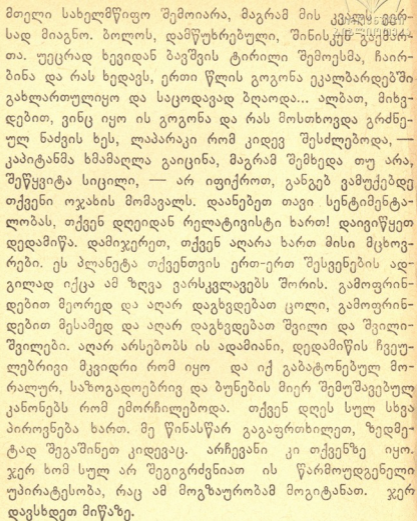 მთელი სახელმწიფო შემოიარა, მაგრამ მის კვალს ვერ-
სად მიაგნო. ბოლოს, დამწუხრებული, შინისკენ გაემარ-
თა. უეცრად ხევიდან ბავშვის ტირილი შემოესმა, ჩაირ-
ბინა და რას ხედავს, ერთი წლის გოგონა ეკალბარდებში
გახლართულიყო და საცოდავად ბღაოდა... ალბათ, მიხვ-
დებით, ვინც იყო ის გოგონა და რას მოსთხოვდა გრძნე-
ულ ნაძვის ხეს, ლაპარაკი რომ კიდევ შესძლებოდა, —
კაპიტანმა ხმამაღლა გაიცინა, მაგრამ შემხედა თუ არა,
შეწყვიტა სიცილი, — არ იფიქროთ, განგებ ვამუქებდე
თქვენი ოჯახის მომავალს. დაანებეთ თავი სენტიმენტა-
ლობას, თქვენ დღეიდან რელატივისტი ხართ! დაივიწყეთ
დედამიწა. დამიჯერეთ, თქვენ აღარა ხართ მისი მცხოვ-
რები. ეს პლანეტა თქვენთვის ერთ-ერთ შესვენების ად-
გილად იქცა ამ ზღვა ვარსკვლავებს შორის. გამოფრინ-
დებით მეორედ და აღარ დაგხვდებათ ცოლი, გამოფრინ-
დებით მესამედ და აღარ დაგხვდებათ შვილი და შვილი-
შვილები. აღარ არსებობს ის ადამიანი, დედამიწის ჩვეუ-
ლებრივი მკვიდრი რომ იყო და იქ გაბატონებულ მო-
რალურ, საზოგადოებრივ და ბუნების მიერ შემუშავებულ
კანონებს რომ ემორჩილებოდა. თქვენ დღეს სულ სხვა
პიროვნება ხართ. მე წინასწარ გაგაფრთხილეთ, ზედმე-
ტად შეგაშინეთ კიდევაც. არჩევანი კი თქვენზე იყო.
ჯერ ხომ სულ არ შეგიგრძვნიათ ის წარმოუდგენელი
უპირატესობა, რაც ამ მოგზაურობამ მოგიტანათ. ჯერ
დავსხდეთ მიწაზე.